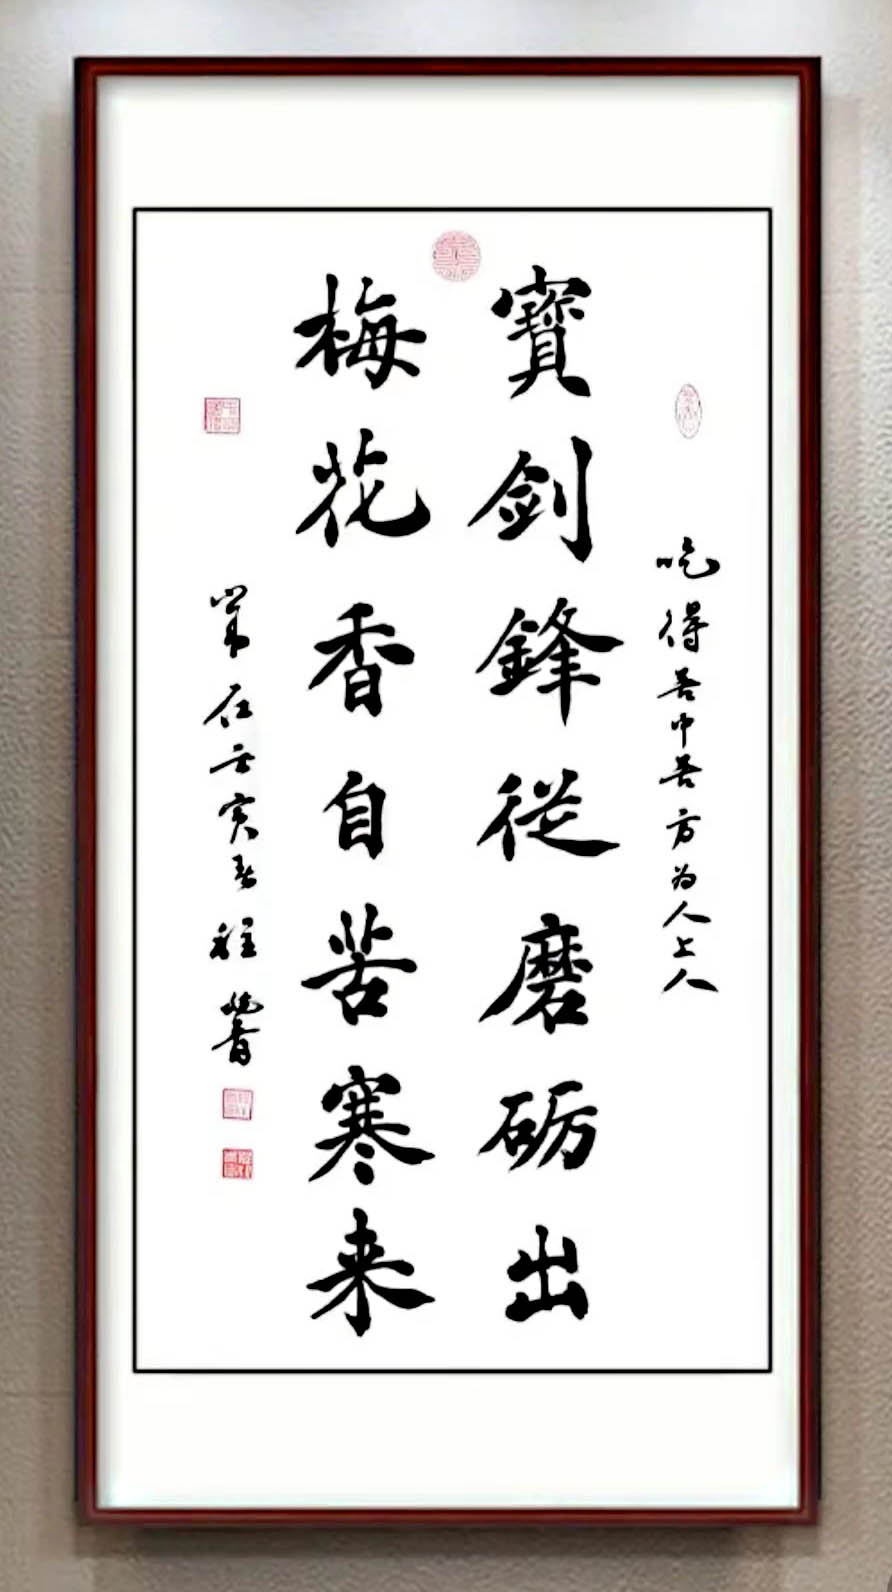 吃得苦中苦方为人上人
寶剑鋒従磨砺出
梅花香自苦寒来
岁在壬寅春程